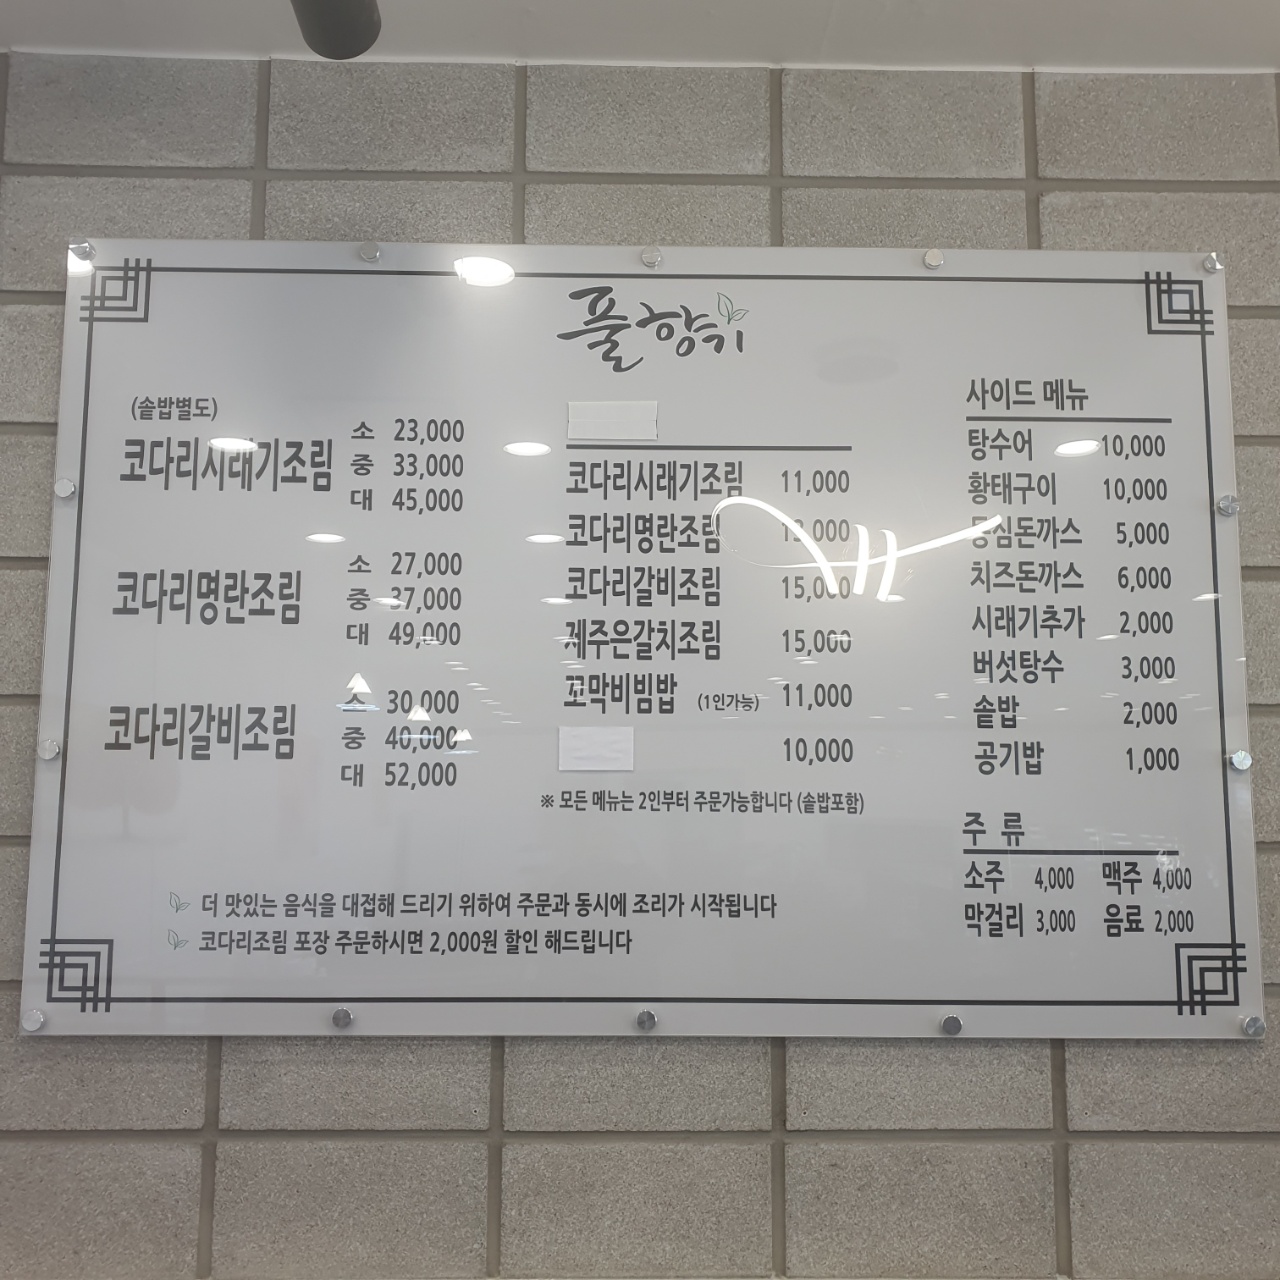 풀향기
(솥밥별도)
코다리시래기조림
소 23,000
중 33,000
대 45,000
코다리명란조림
소 27,000
중 37,000
대 49,000
코다리갈비조림
소 30,000
중 40,000
대 52,000
코다리시래기조림 11,000
코다리명란조림 13,000
코다리갈비조림 15,000
제주은갈치조림 15,000
꼬막비빔밥 (1인가능) 11,000
10,000
※ 모든 메뉴는 2인부터 주문가능합니다 (솥밥포함)
사이드 메뉴
탕수어 10,000
황태구이 10,000
등심돈까스 5,000
치즈돈까스 6,000
시래기추가 2,000
버섯탕수 3,000
솥밥 2,000
공기밥 1,000
주 류
소주 4,000 맥주 4,000
막걸리 3,000 음료 2,000
더 맛있는 음식을 대접해 드리기 위하여 주문과 동시에 조리가 시작됩니다
코다리조림 포장 주문하시면 2,000원 할인 해드립니다